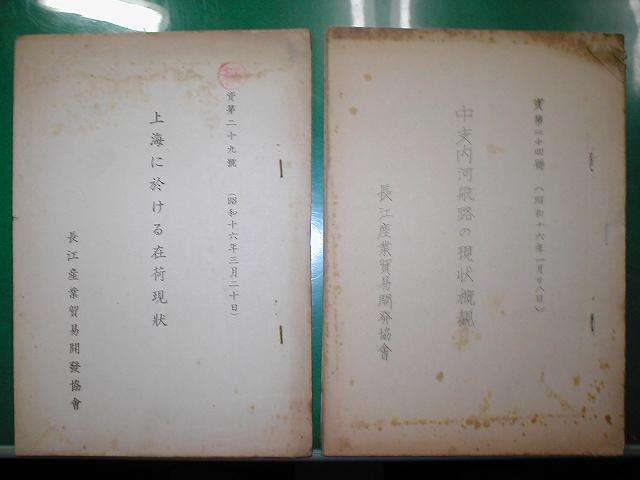 資第二十九號 (昭和十六年三月二十日)
上海に於ける在荷現狀
長江産業貿易開發協會
資第二十四號 (昭和十六年一月廿八日)
中支内河航路の現狀概觀
長江産業貿易開發協會